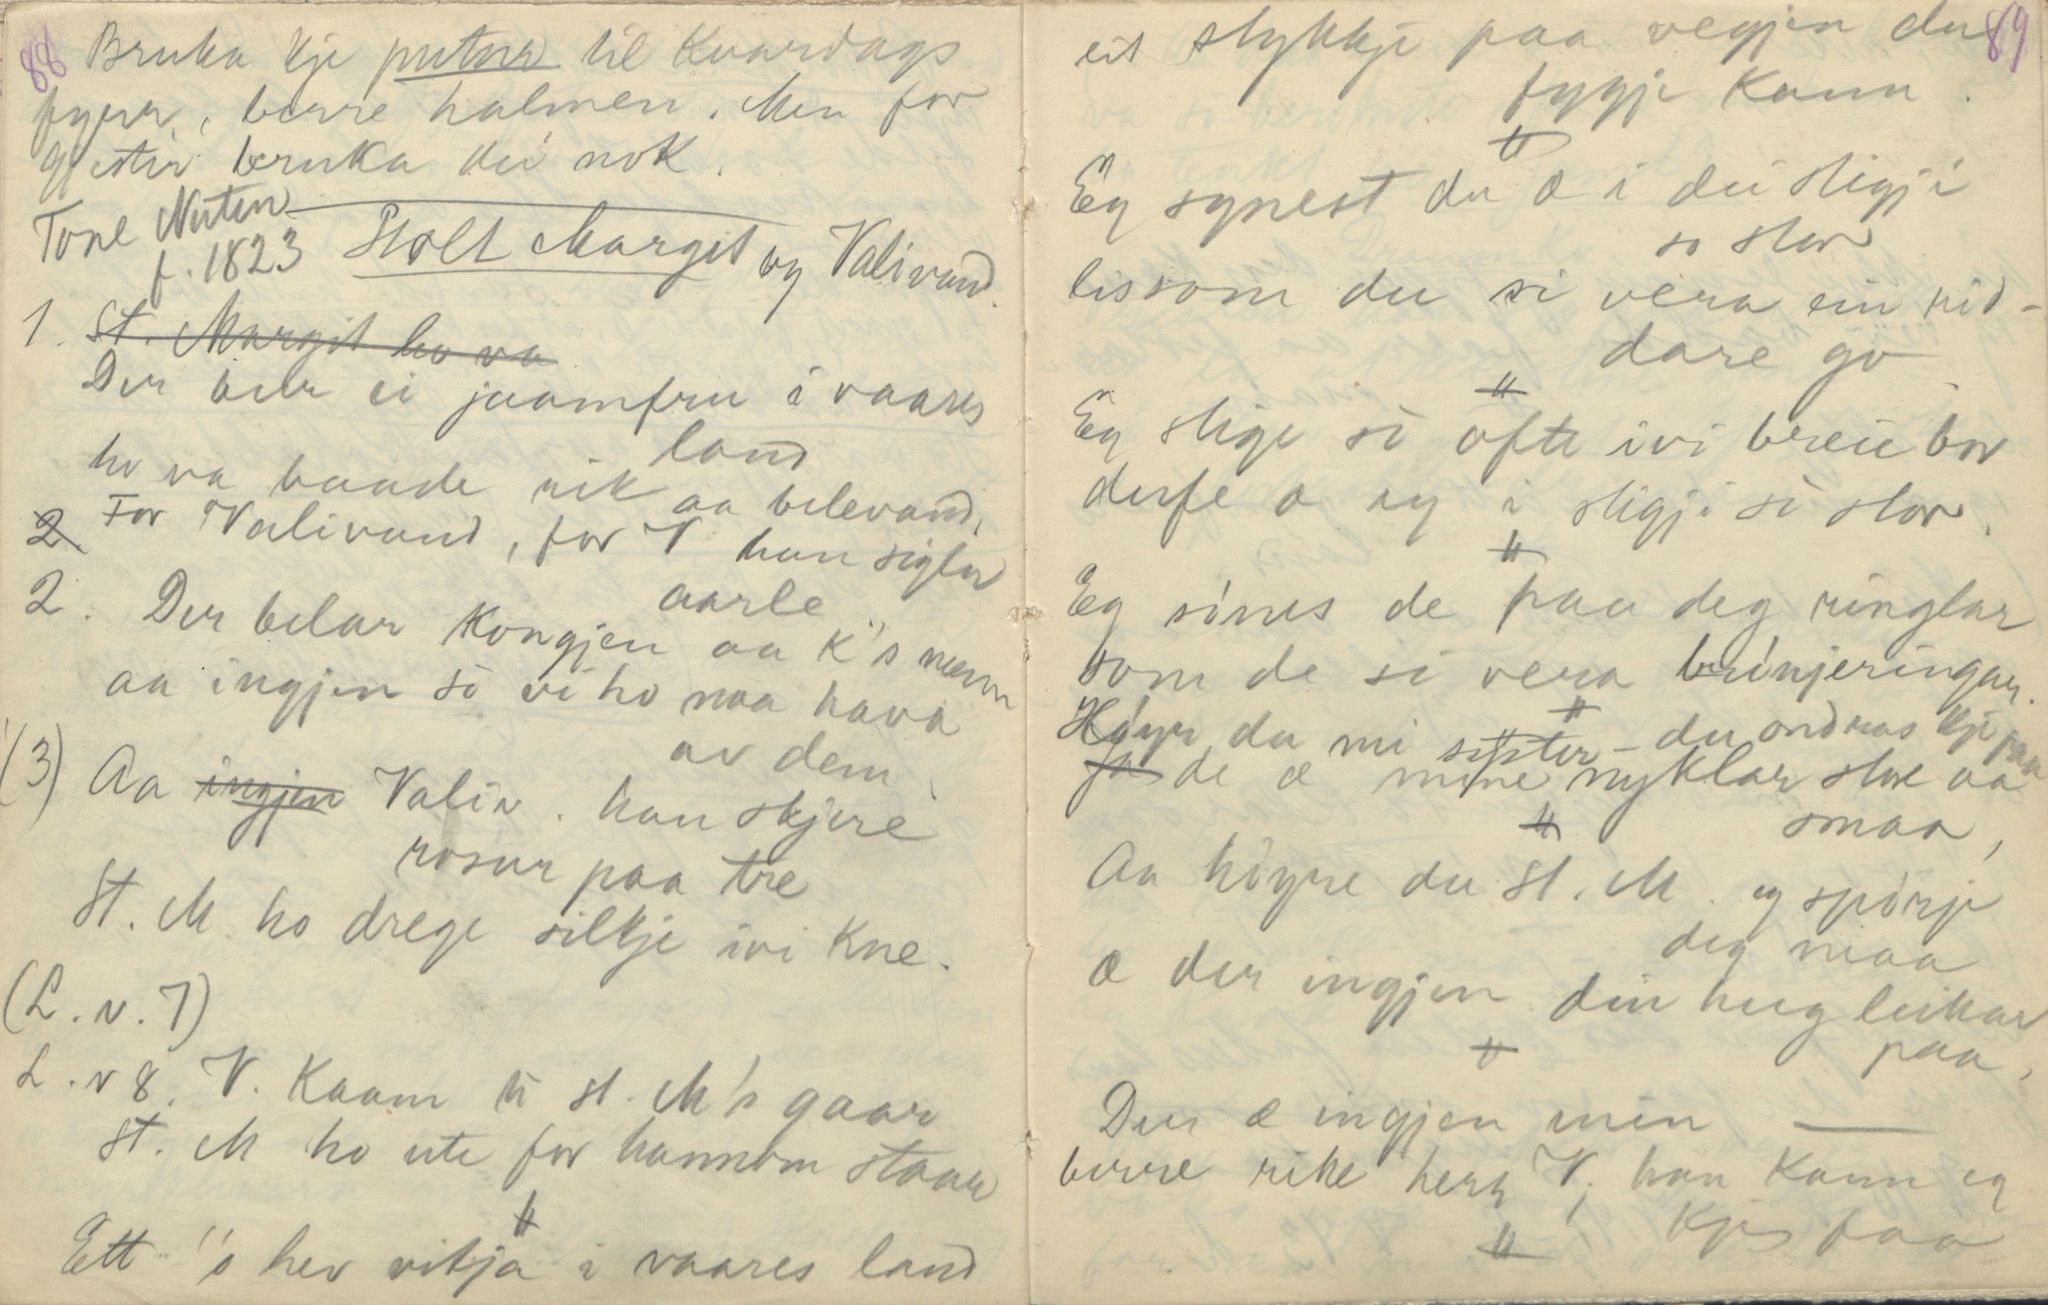 88
Bruka kje putur til kvardags
fyrr, berre halmen. Men for
gjestir bruka dei nok.
Tone Nuten
f. 1823 Stolt Margit og Valivand.
1. St. Margit ho va
Der bur ei jaamfru i vaares
land
ho va baade rik aa belevand,
2 For Valivand, for V han siglar
aarle
2. Der belar Kongjen aa K"s menn
aa ingjen so vi ho naa hava
av dem
(3) Aa ingjen Valiv. han skjere
rosur paa tre
St. M ho drege silkje ivi kne.
(L. v. 7)
L. v 8. V. Kaam ti st. M's gaar
St. M ho ute for hannom staar
"
Ett "s hev vitja i vaares land
89
eit stykkje paa vegjen du
fygje kann.
"
Eg synest du æ i dei stigji
so stor
lissom du si vera ein rid-
dare go
"
Eg stige så ofte ivi breie bor
derfe æ eg i stigji så stor.
"
Eg sines de paa deg ringlar
som de si vera brinjeringar.
"
Høyr du mi syster - du ondras kje paa
ja de æ mine nyklar store aa
smaa,
"
Aa høyre du St. M. eg spørje
deg maa
æ der ingjen din hug leikar
paa,
"
Der æ ingjen min —
berre rike herr V, han kann eg
kje faa
"